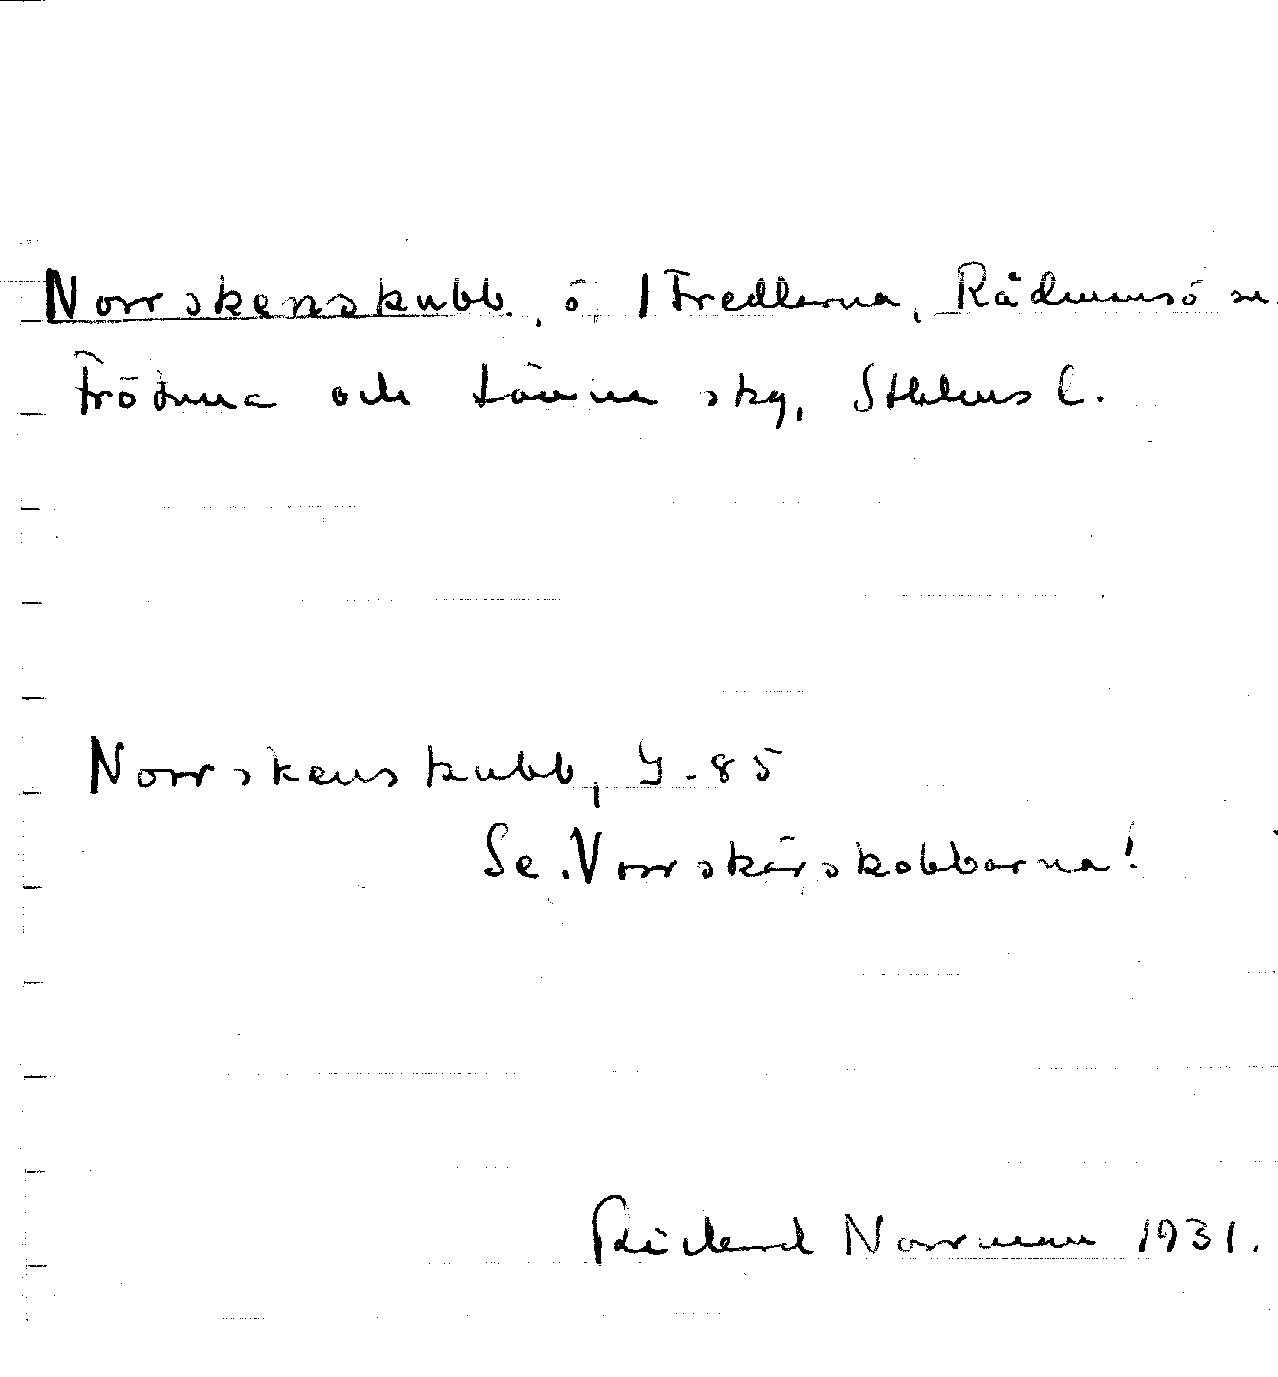 Norrskenskubb, ö i Fredlarna, Rådmansö sn
Frötuna och Länna skg, Sthlms l.
Norrskenskubb, Y-85
Se Norrskärskobbarna!
Rickard Norrman 1931.